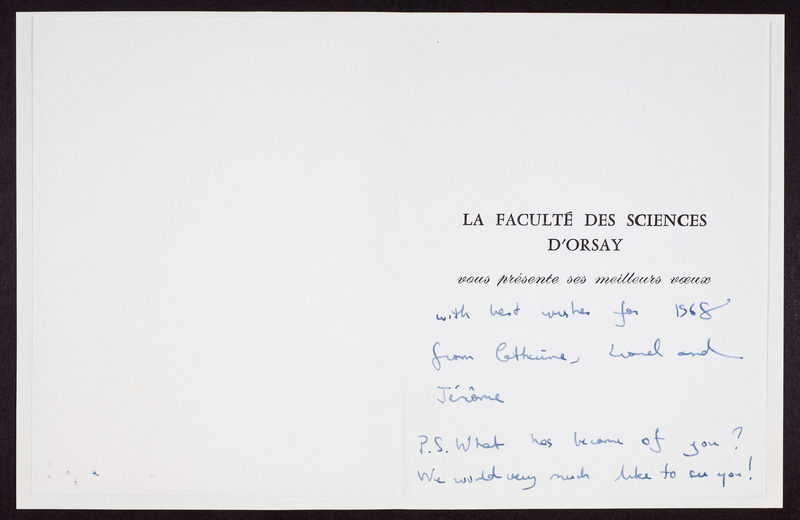 LA FACULTÉ DES SCIENCES
D'ORSAY
vous présente ses meilleurs vœux
with best wishes for 1968
from Catherine, Lionel and
Jérôme
P.S. What has become of you?
We would very much like to see you!